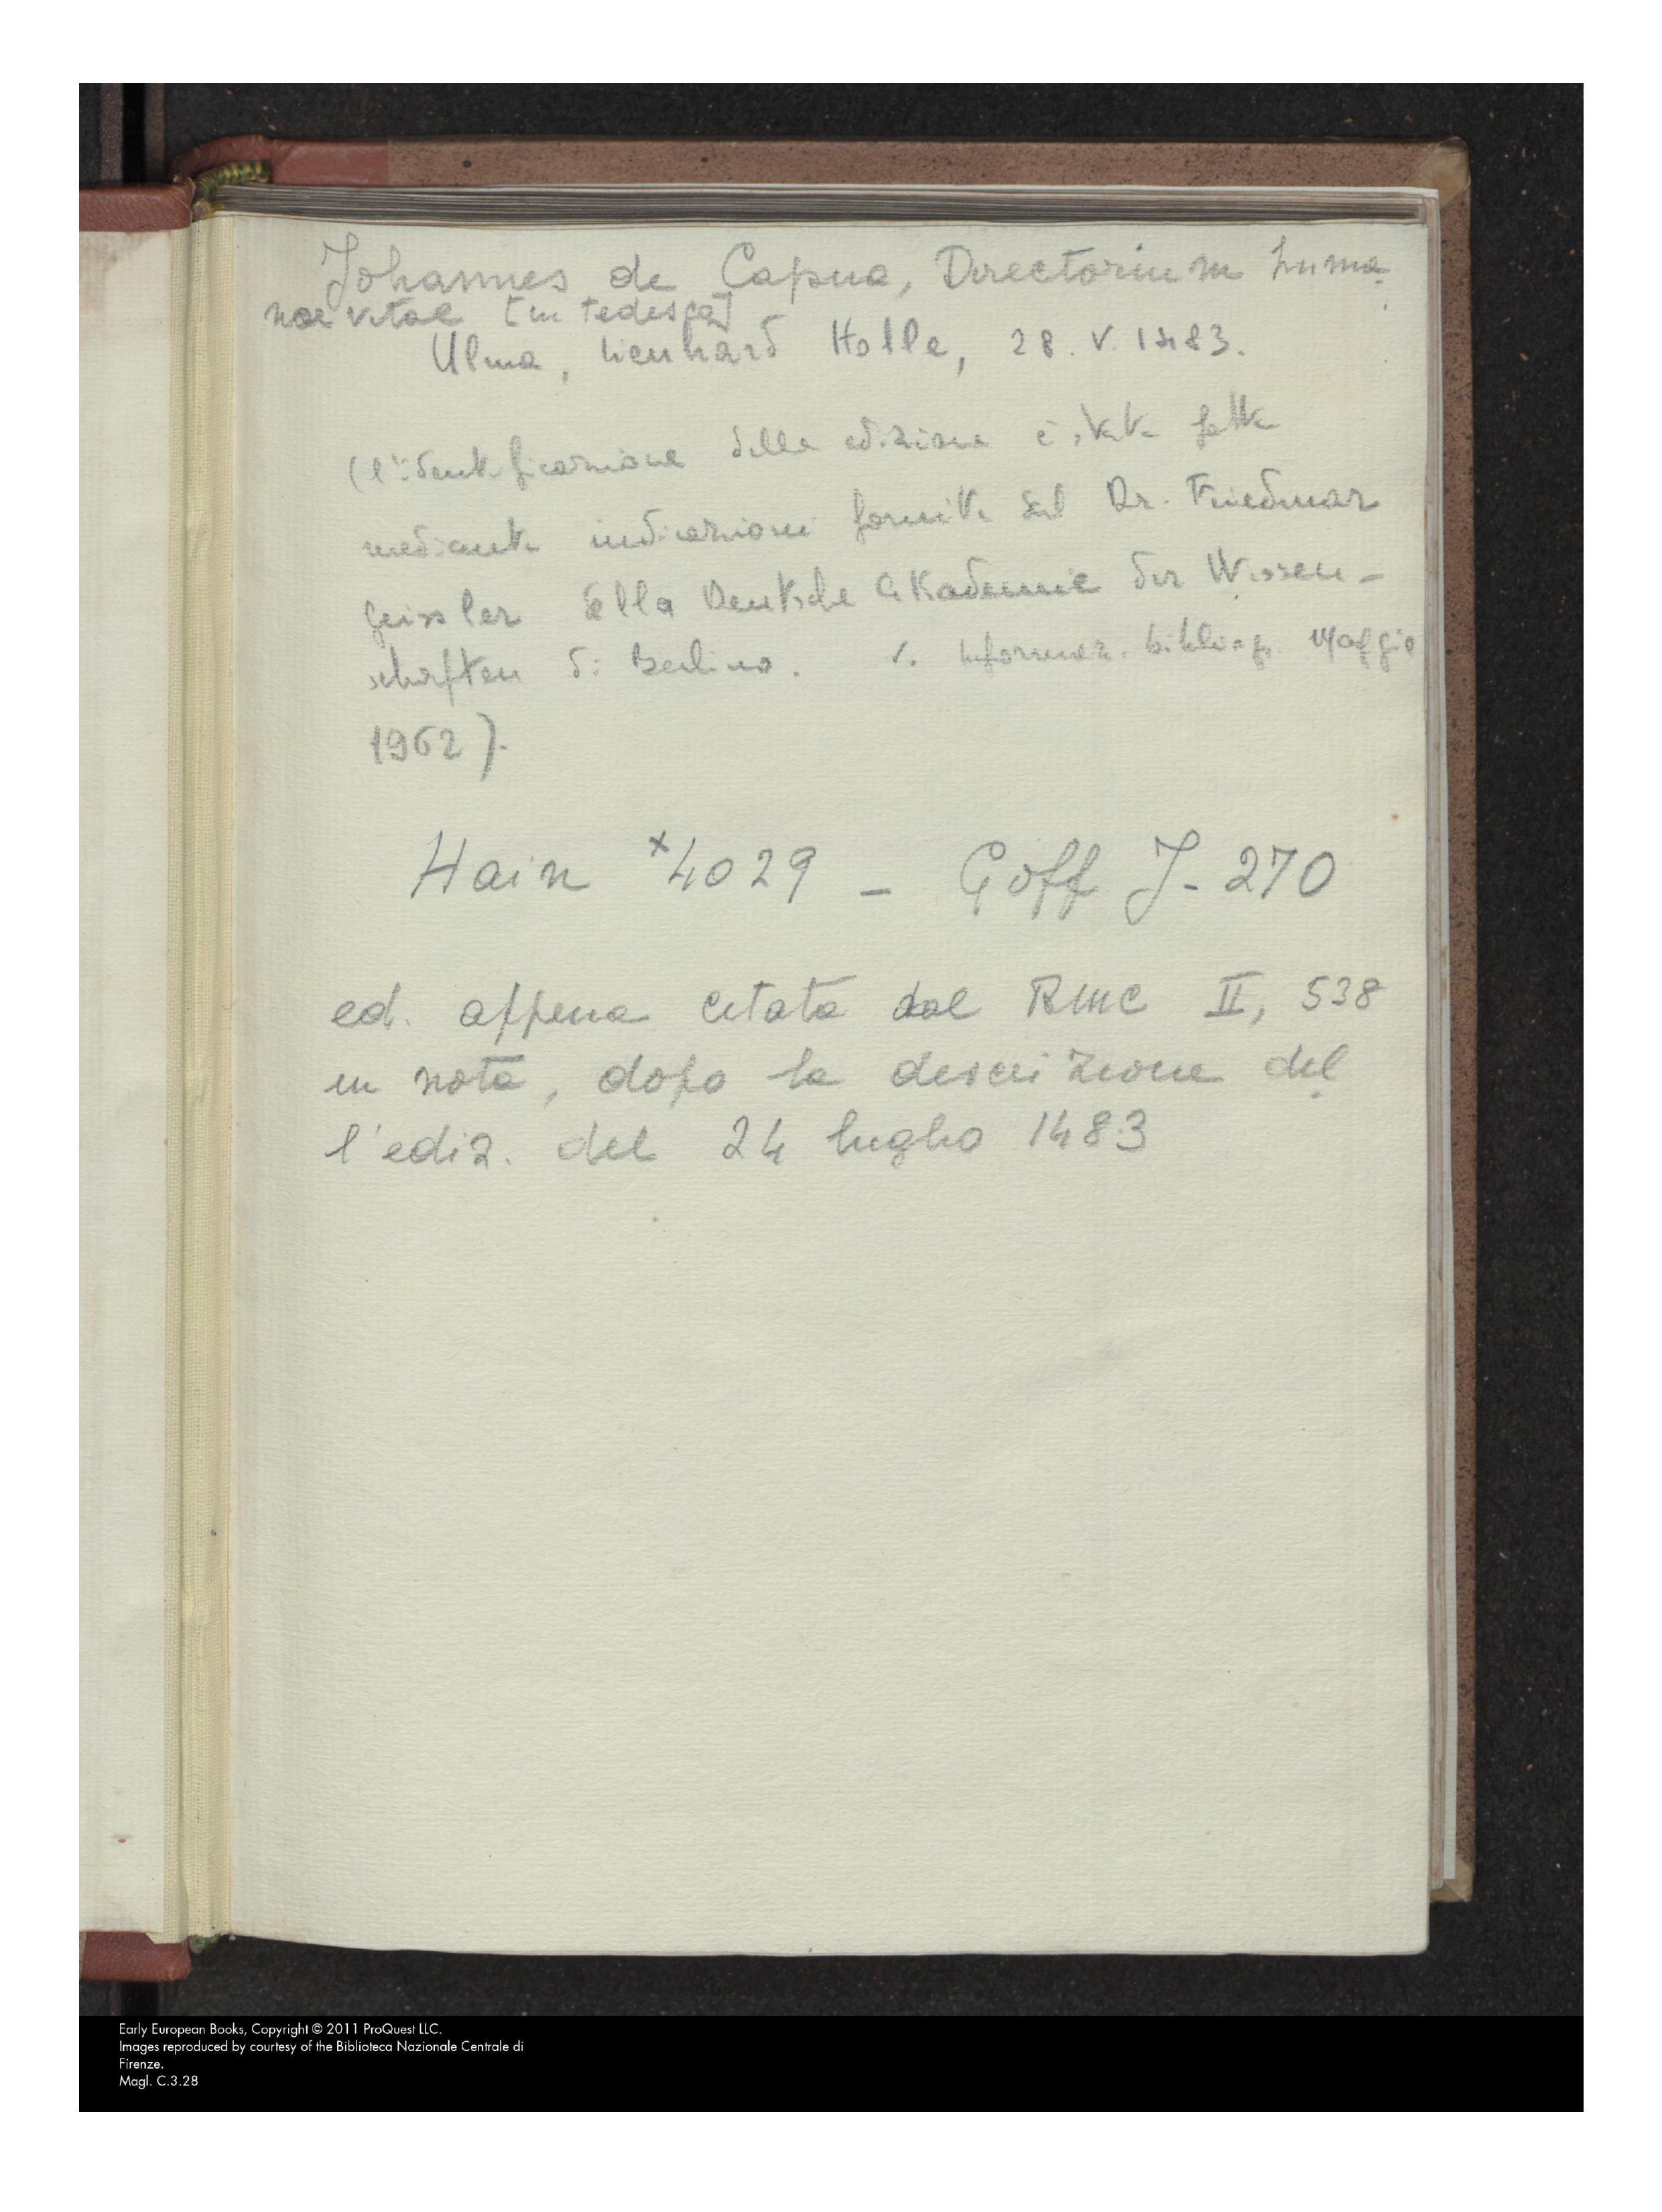 Johannes de Capua, Directorium huma-
nae vitae [in tedesco]
Ulma, Lienhard Holle, 28. V. 1483.
(l'identificazione della edizione è stata fatta
mediante indicazioni fornite dal Dr. Friedmar
Geissler della Deutsche Akademie der Wissen-
schaften di Berlino. v. Informaz. bibliogr. Maggio
1962).
Hain *4029 - Goff J-270
ed. appena citata dal BMC II, 538
in nota, dopo la descrizione del
l'ediz. del 24 luglio 1483
Early European Books, Copyright © 2011 ProQuest LLC.
Images reproduced by courtesy of the Biblioteca Nazionale Centrale di
Firenze.
Magl. C.3.28